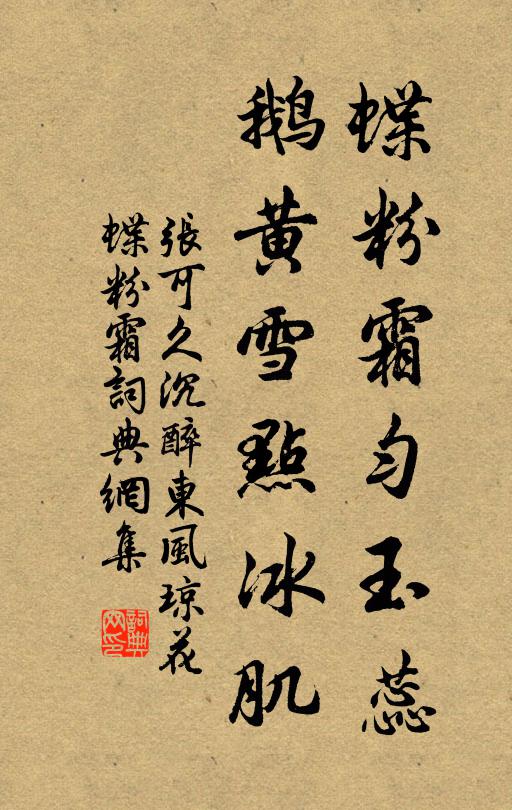 蝶粉霜勻玉蕊
鵝黃雪點冰肌
張可久沉醉東風琼花
蝶粉霜詞典網集
詞典
网印